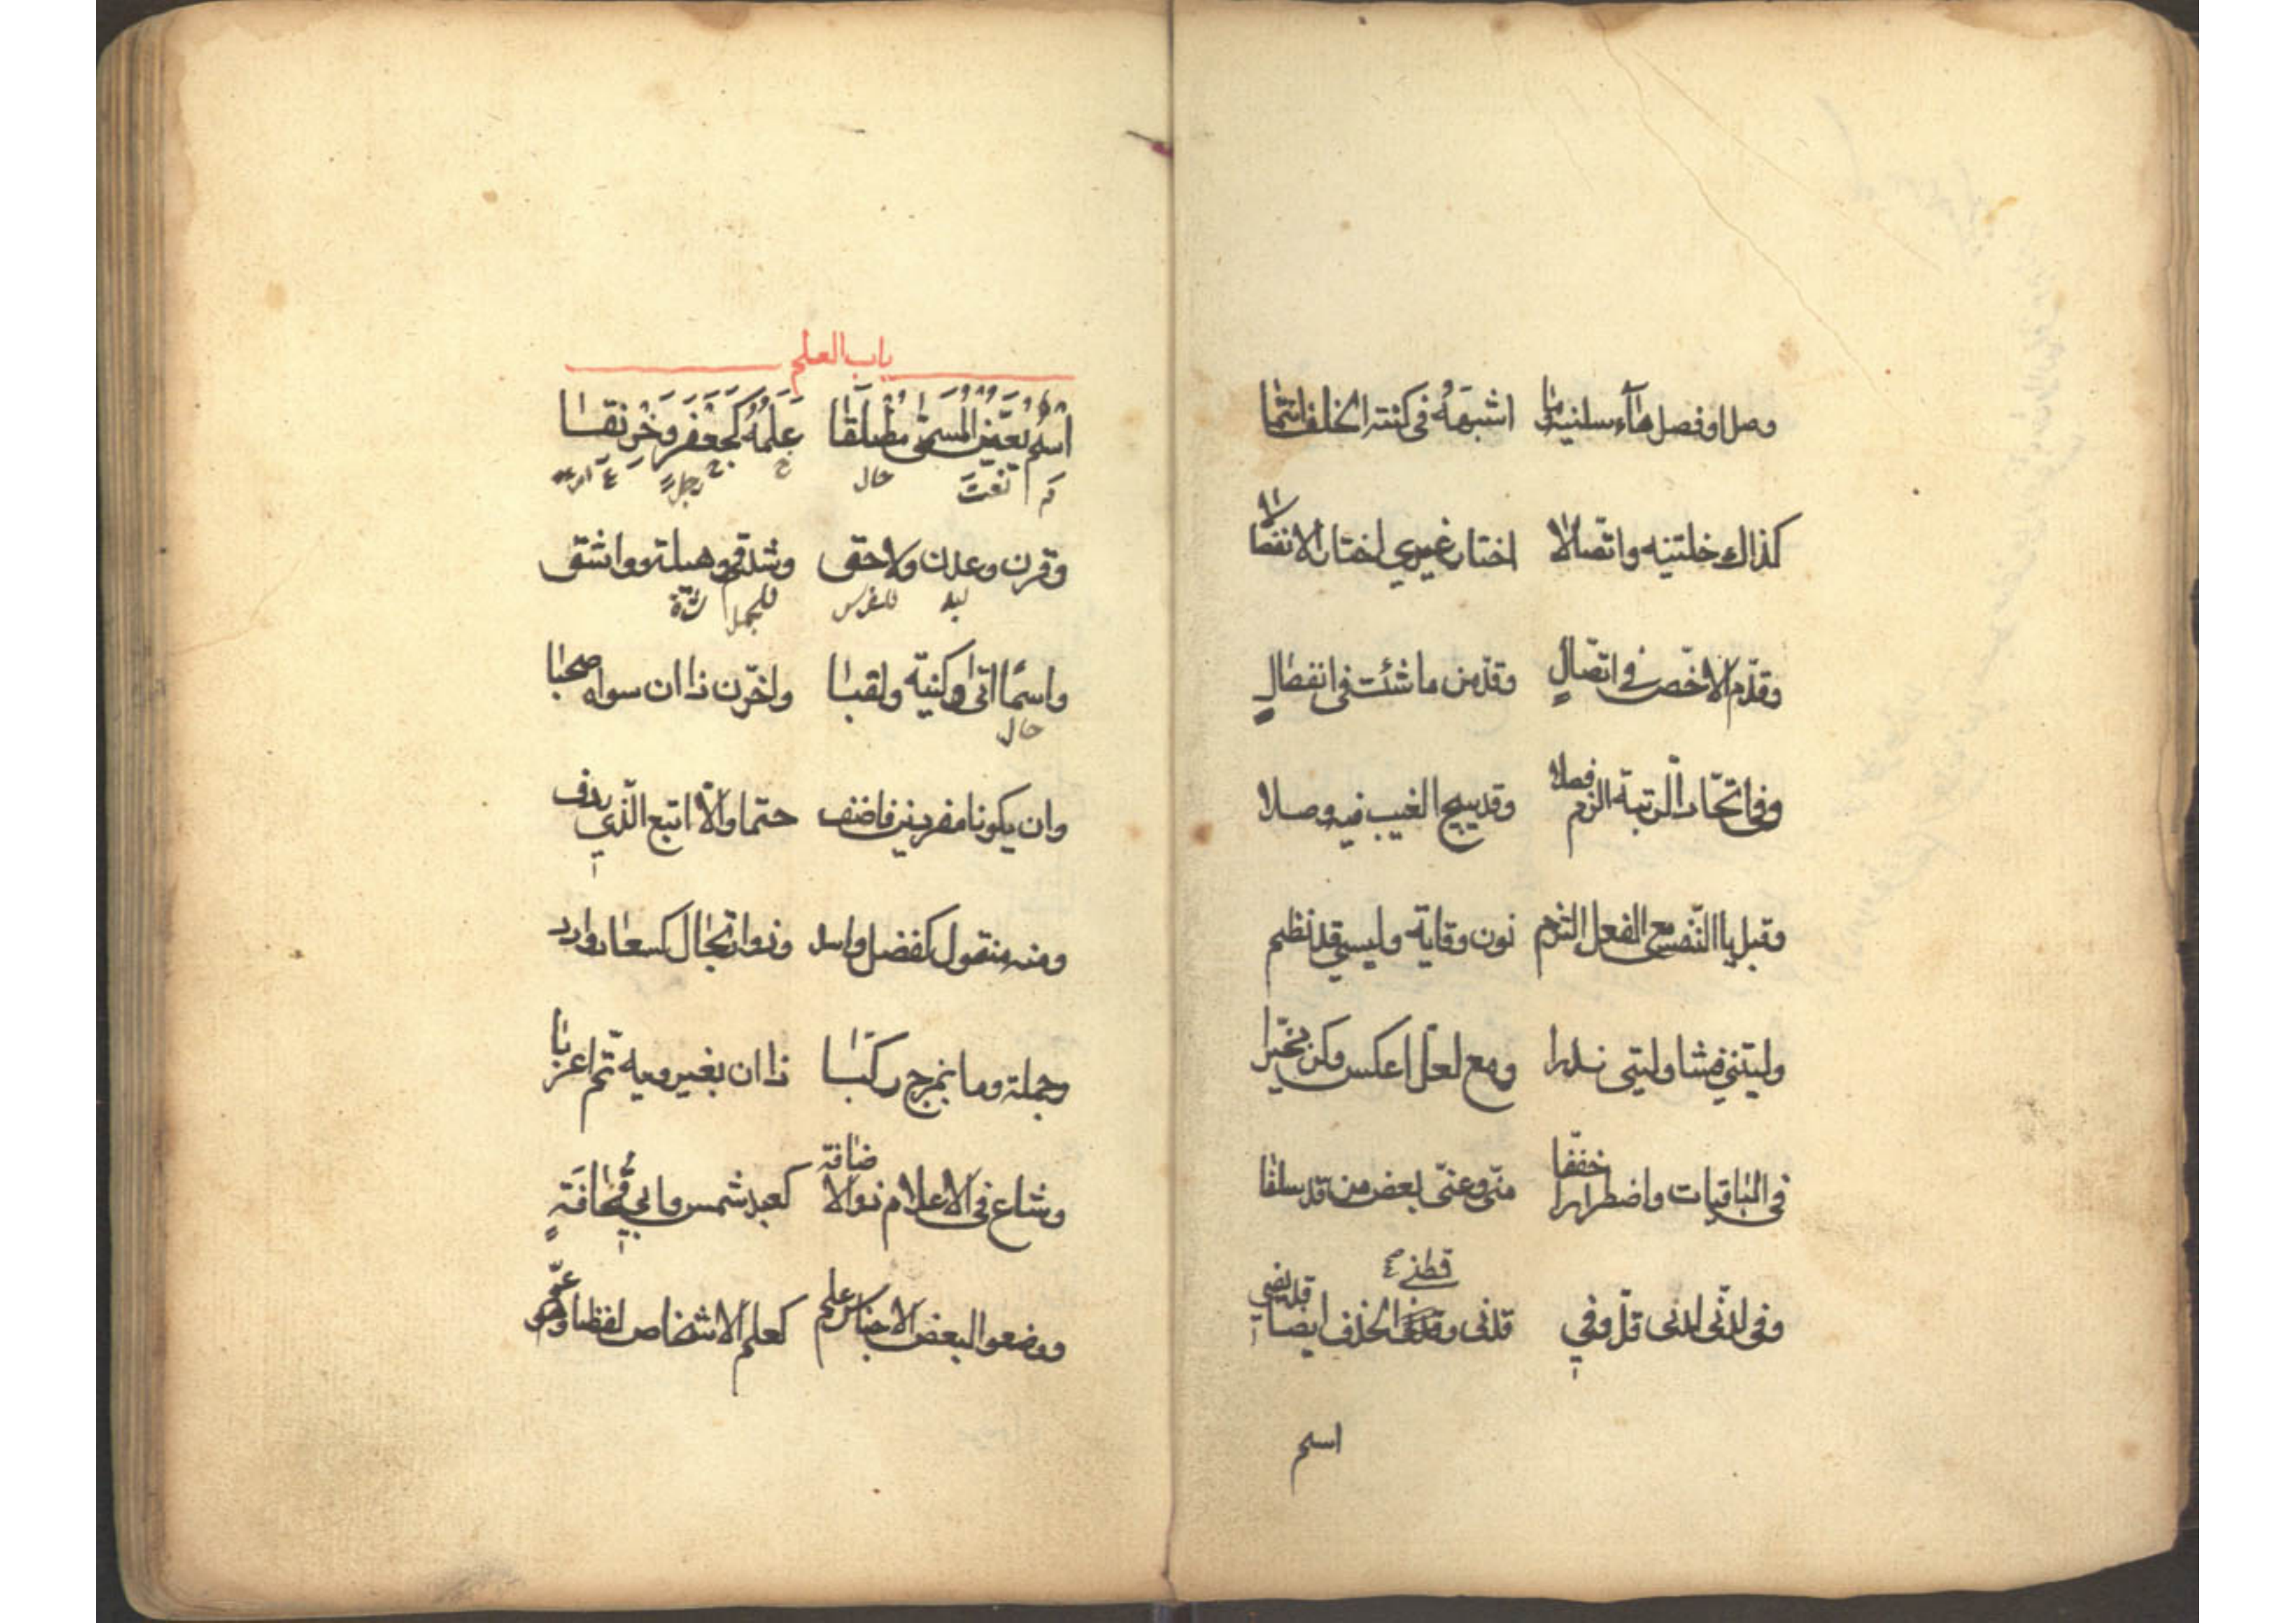 وصل او فصل هآء سلنيه وما اشبهه فى كنته الخلف انتما
كذاك خلتنيه واتّصالا اختار غيري اختار الانفصالا
وقدّم الاخّص في اتّصالٍ وقدّمن ما شئت فى انفصالٍ
وفى اتّحاد الرّتبة الزم فصلا وقد يبيح الغيب فيه وصلا
وقبل يا النّفس مع الفعل التزم نون وقاية وليسي قد نظم
وليتني فشا وليتى ندرا ومع لعلّ اعكس وكن مخيّرا
فى الباقيات واضطرارا خفّفا منّى وعنّى بعض من قد سلفا
وفى لدنّى لدنى قلّ وفي قدنى وقطنى الحذف ايضا قد يفي
قطني
اسم
باب العلم
اسم يعيّن المسمّى مطلقا علمه كجعفر وخرنقا
نعت حال رجل
وقرن وعدن ولاحق وشذقم وهيلة وواشق
للفرس للجمل
واسمًا اتى وكنيّة ولقبا واخّرن ذا ان سواه صحبا
حال
وان يكونا مفردين فاضف حتما والّا اتبع الّذي ردف
ومنه منقول كفضل واسد وذو ارتجال كسعاد وادد
وجملة وما بمزج ركّبا ذا ان بغير ويه تمّ اعربا
وشاع فى الاعلام ذو الاضافة كعبد شمس وابي قحافةٍ
ووضعوا لبعض الاجناس علم كعلم الاشخاص لفظا وهو عمّ